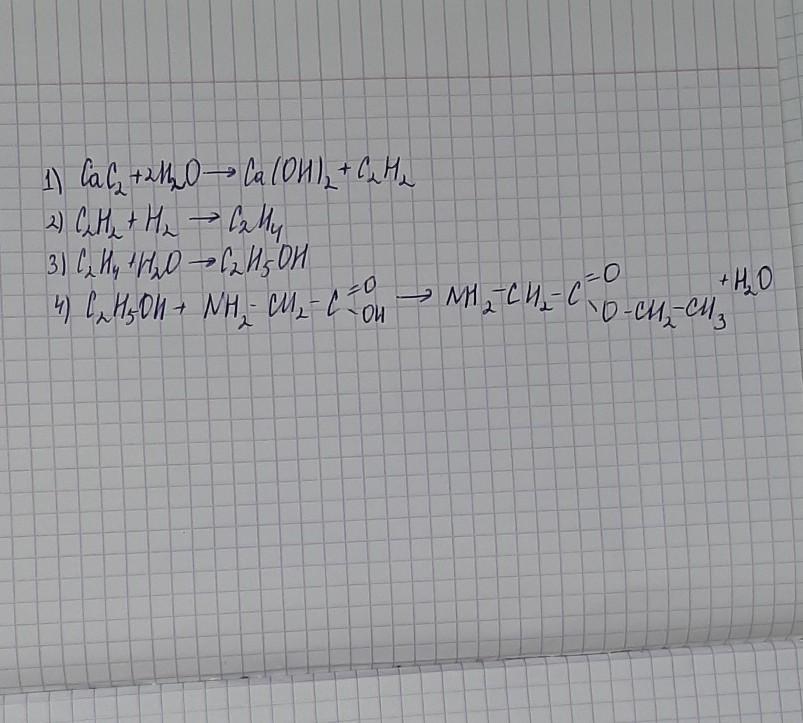 1) CaC₂ + 2H₂O → Ca(OH)₂ + C₂H₂
2) C₂H₂ + H₂ → C₂H₄
3) C₂H₄ + H₂O → C₂H₅OH
4) C₂H₅OH + NH₂-CH₂-C(=O)-OH → NH₂-CH₂-C(=O)-O-CH₂-CH₃ + H₂O